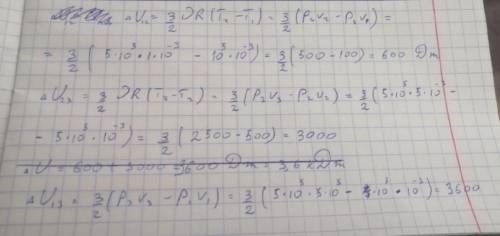 ΔU₁₂ = 3/2 νR(T₂ - T₁) = 3/2 (P₂V₂ - P₁V₁) =
= 3/2 (5·10⁵·1·10⁻³ - 10⁵·10⁻³) = 3/2 (500 - 100) = 600 Дж
ΔU₂₃ = 3/2 νR(T₃ - T₂) = 3/2 (P₂V₃ - P₂V₂) = 3/2 (5·10⁵·5·10⁻³ -
- 5·10⁵·10⁻³) = 3/2 (2500 - 500) = 3000
ΔU = 600 + 3000 = 3600 Дж = 3,6 кДж
ΔU₁₃ = 3/2 (P₃V₃ - P₁V₁) = 3/2 (5·10⁵·5·10⁻³ - 10⁵·10⁻³) = 3600